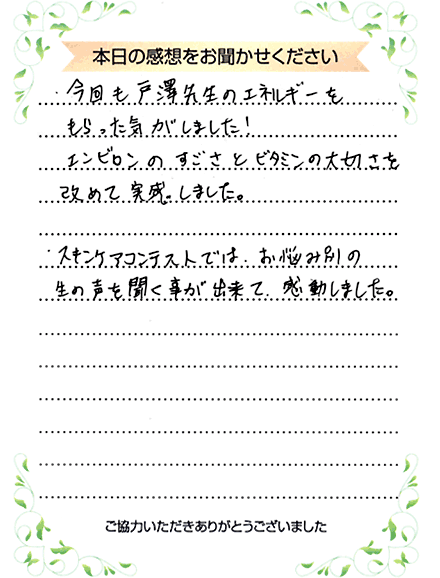 本日の感想をお聞かせください
・今回も戸澤先生のエネルギーを
もらった気がしました!
エンビロンのすごさとビタミンの大切さを
改めて実感しました。
・スキンケアコンテストでは、お悩み別の
生の声を聞く事が出来て、感動しました。
ご協力いただきありがとうございました